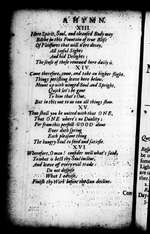 A HYMN.
XIII.
Here Spirit, Soul, and cleansed Body may
Bathe in this Fountain of true Bliss
Of Pleasures that will n'ere decay,
All joyful Sights
And hid Delights;
The sense of these renewed here daily is.
XIV.
Come therefore, come, and take an higher flight,
Things perishing leave here below,
Mount up with winged Soul and Spright,
Quick let's be gone
To him that's One,
But in this one to us can all things show.
XV.
Thus shall you be united with that ONE,
That ONE where's no Duality;
For from this perfect GOOD alone
Ever doth spring
Each pleasant thing
The hungry Soul to feed and satisfie.
XVI.
Wherefore, O man! consider well what's said,
To what is best thy Soul incline,
And leave off every evil trade:
Do not despise
What I advise,
Finish thy Work before the Sun decline.